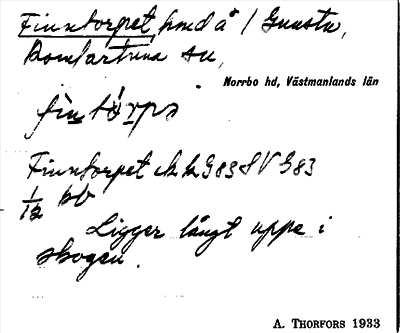 Finntorpet, hmd å / Gunsta,
Romfartuna sn,
Norrbo hd, Västmanlands län
Finntorpet
1/12
Ligger långt uppe i
skogen.
A. THORFORS 1933